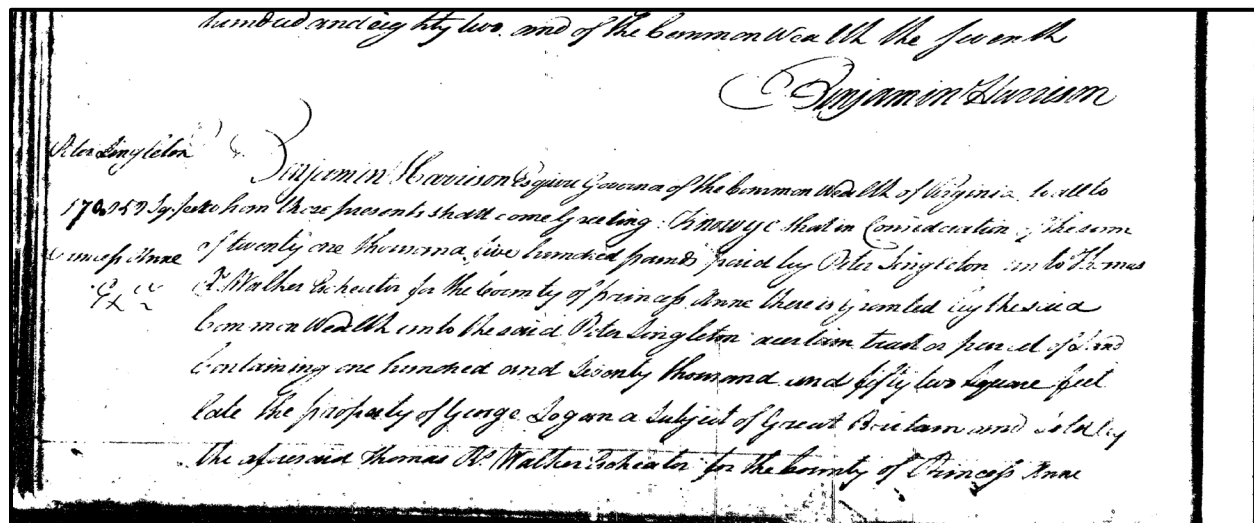 hundred and eighty two. and of the Common Wealth the seventh
Benjamin Harrison
Peter Singleton
170,052 Sq. feet
Princess Anne
Benjamin Harrison Esquire Governor of the Common Wealth of Virginia to all to
whom these presents shall come Greeting. Know ye that in Consideration of the sum
of twenty one thousand five hundred pounds paid by Peter Singleton unto Thomas
Rs. Walker Escheator for the County of princess Anne there is Granted by the said
Common Wealth unto the said Peter Singleton a certain tract or parcel of Land
Containing one hundred and Seventy thousand and fifty two square feet
late the property of George Logan a Subject of Great Britain and sold by
the aforesaid Thomas Rs. Walker Escheator for the County of Princess Anne